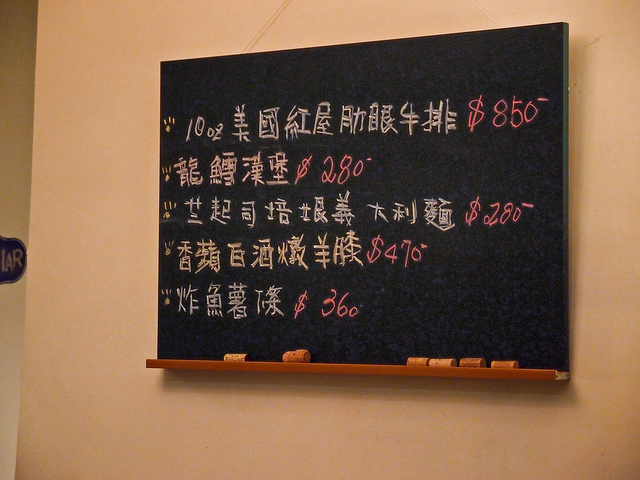 10oz 美國紅屋肋眼牛排 $850-
龍鱈漢堡 $280-
芝起司培根義大利麵 $280-
香蘋白酒燉羊膝 $470-
炸魚薯條 $360
IAR